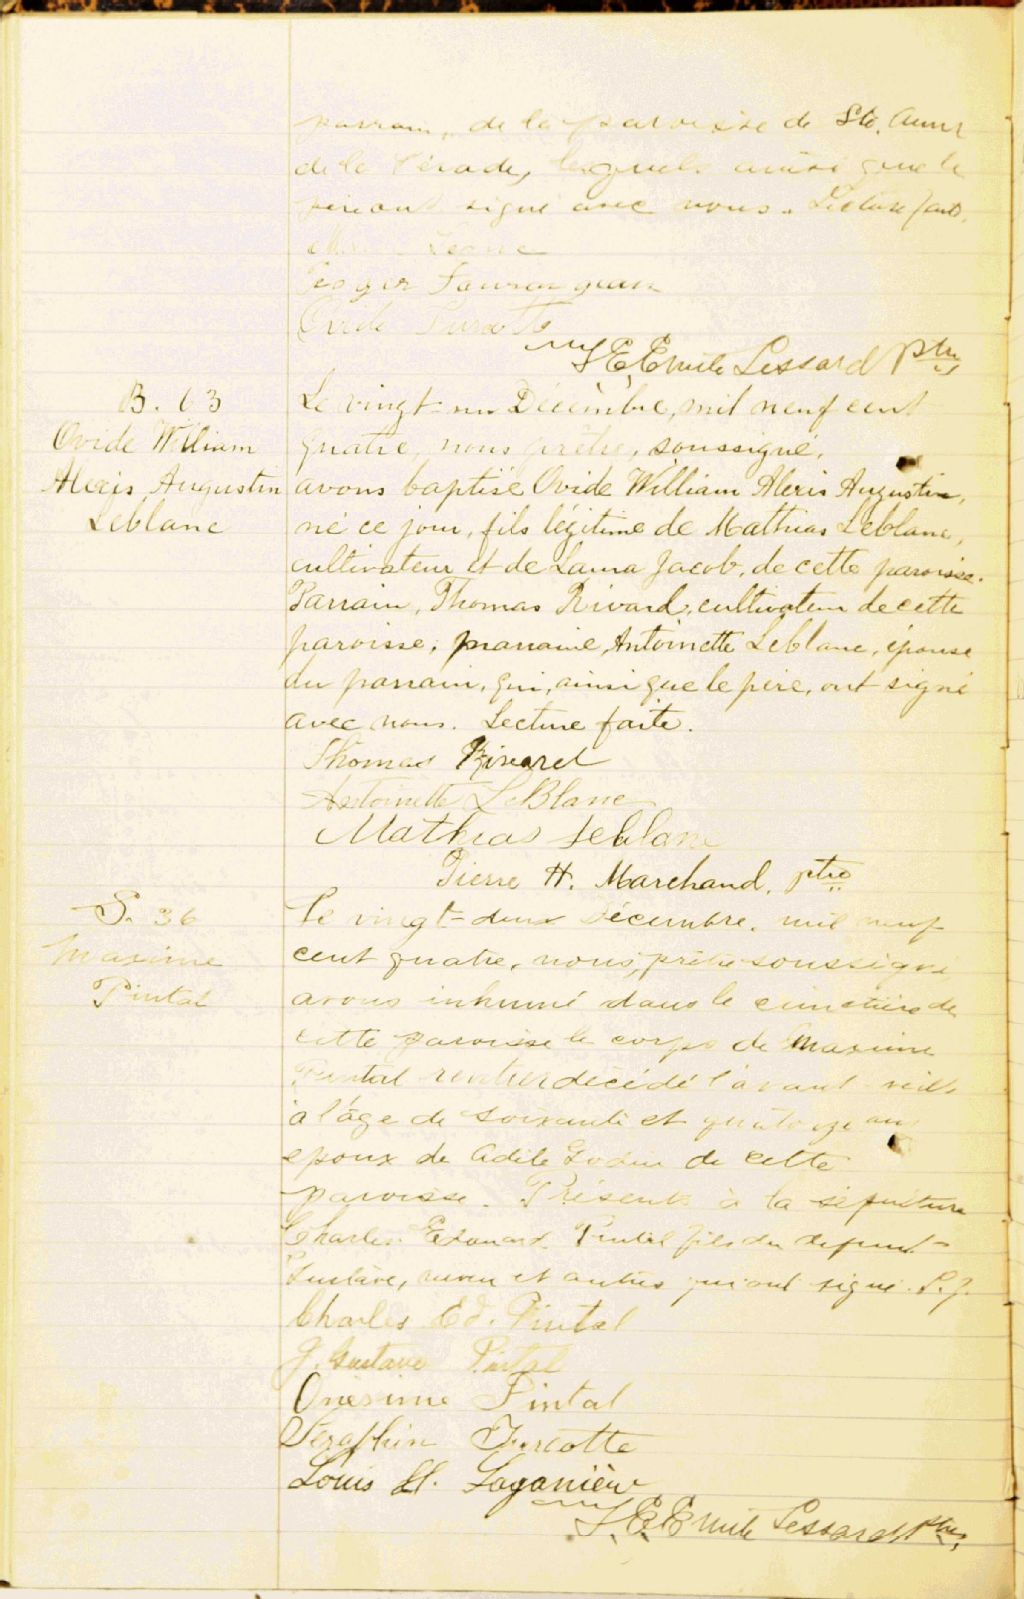 parrain, de la paroisse de Ste. Anne
de la Pérade, lesquels ainsi que le
père ont signé avec nous. Lecture faite.
Ovide Turcotte
J. E. Emile Lessard ptre
B. 63
Ovide William
Alexis Augustin
Leblanc
Le vingt-un Décembre, mil neuf cent
quatre, nous prêtre, soussigné,
avons baptisé Ovide William Alexis Augustin,
né ce jour, fils légitime de Mathias Leblanc,
cultivateur et de Laura Jacob, de cette paroisse.
Parrain, Thomas Rivard, cultivateur de cette
paroisse; marraine, Antoinette Leblanc, épouse
du parrain, qui, ainsi que le père, ont signé
avec nous. Lecture faite.
Thomas Rivard
Antoinette LeBlanc
Mathias Leblanc
Pierre H. Marchand, ptre
S. 36
Maxime
Pintal
Le vingt-deux Décembre, mil neuf
cent quatre, nous, prêtre soussigné
avons inhumé dans le cimetière de
cette paroisse le corps de Maxime
Pintal rentier décédé l'avant-veille
à l'âge de soixante et quatorze ans
epoux de Adèle Godin de cette
paroisse. Présents à la sépulture
Charles Edouard Pintal fils du defunt
Gustave, neveu et autres qui ont signé. L. f.
Charles Ed. Pintal
J. Gustave Pintal
Onésime Pintal
Séraphin Turcotte
Louis H. Laganière
J. E. Emile Lessard, ptre,